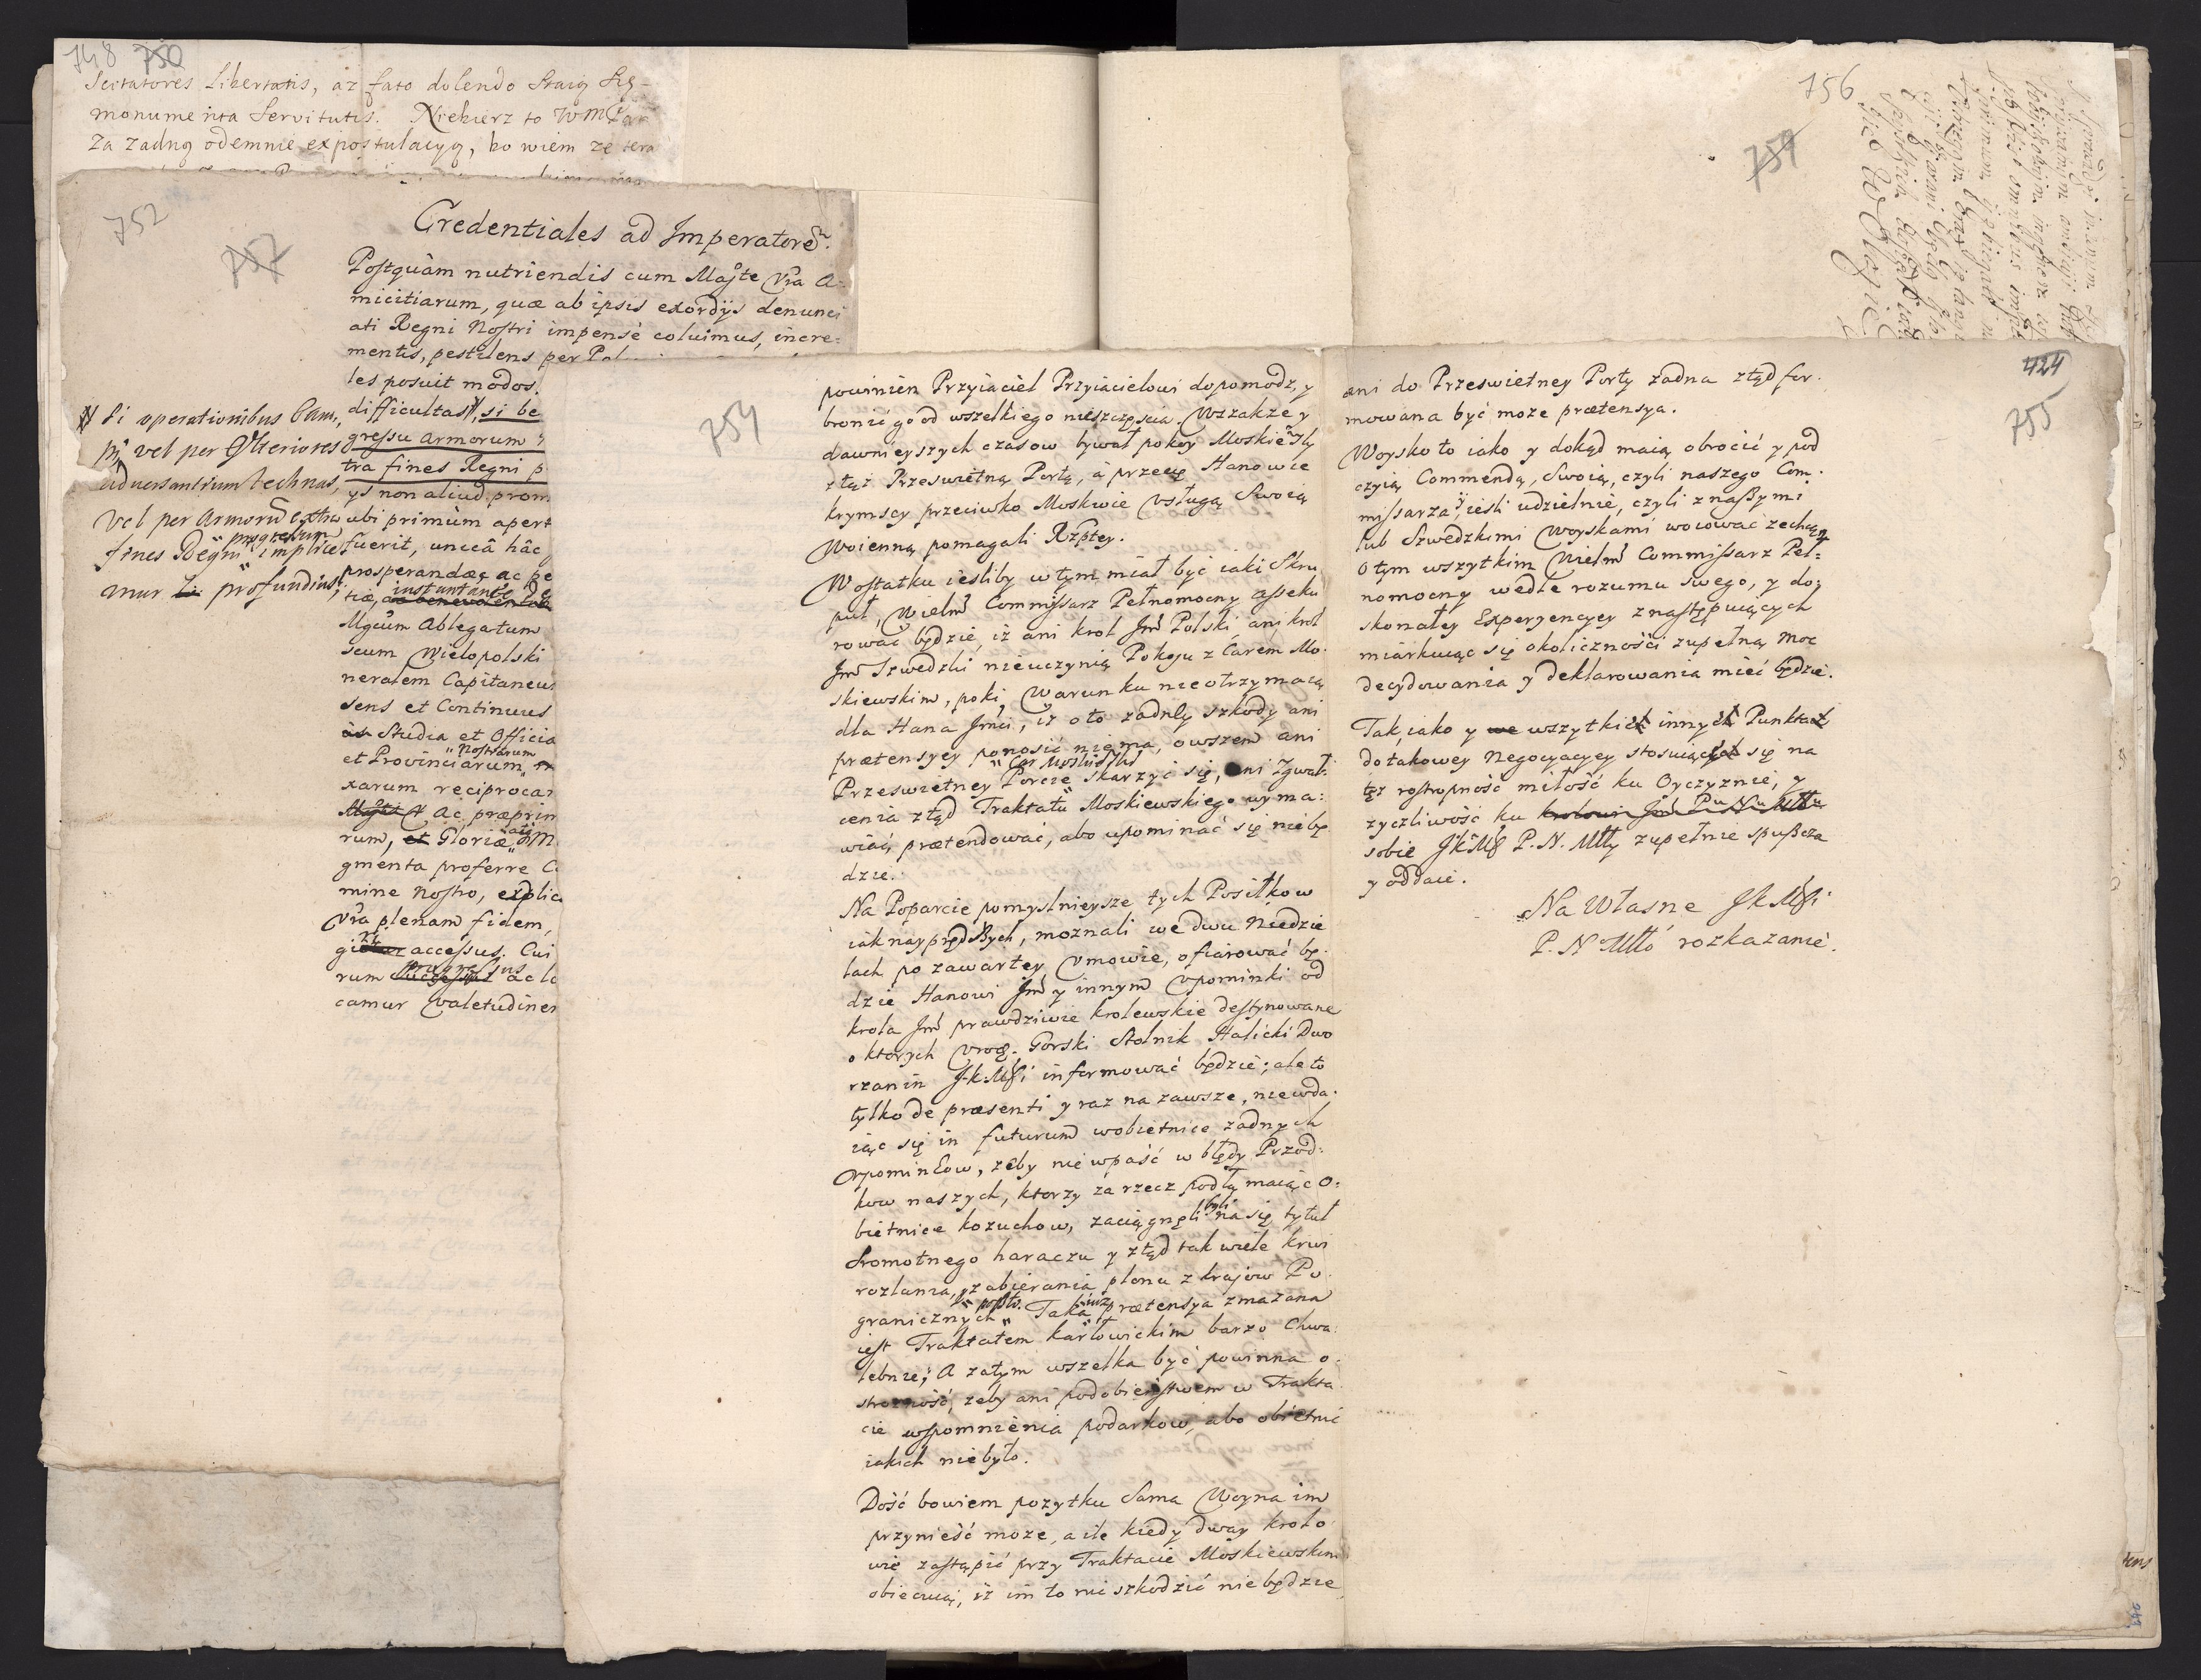 748 750
Scitatores Libertatis, az fato dolendo Staią Się-
monumenta Servitutis. Niebierz to WMP
za zadną odemnie expostulacyą, bo wiem ze tera
752
757
Credentiales ad Imperatorem.
Postquàm nutriendis cum Majte Vrâ A-
micitiarum, quæ ab ipsis exordijs denunci
ati Regni Nostri impensè coluimus, incre-
mentis, pestilens per Pol
les posuit modos.
difficultas, si be
gressu armorum
tra fines Regni p
ys non aliud prom
ubi primùm apert
fuerit, unicâ hâc
prosperandæ ac pe
tiæ, ac benevolentiæ instantiâ de
Mgcum Ablegatum
seum Wielopolski
neralem Capitaneu
sens et Continuus
as Studia et Officia
et Provinciarum Nostrarum
xarum reciprocar
Mgtti Ac præprim
rum, et Gloriæ atq M
gmenta proferre C
mine Nostro, explic
Vrâ plenam fidem,
gi accessus. Cui
rum successus progressus ac lo
camur Valetudinem
Si operationibus Cam,
pi vel per Ulteriores
adversantium technas,
Vel per Armorũ extra
fines Regni progressum implice
mur profundius;
754
powinien Przyiaciel Przyiacielowi dopomodz, y
bronić go od wszelkiego nieszczęścia. Wszakże y
dawnieyszych czasow bywał pokoy Moskiewski
z tąż Przeswietną Portą, a przecię Hanowie
krymscy przeciwko Moskwie Usługą Swoią
Woienną pomagali Rzptey.
W ostatku iesliby w tym miał być iaki Skru
puł, Wielm Commissarz Pełnomocny asseku
rować będzie, iż ani krol Jmć Polski, ani krol
Jmć Szwedzki nieuczynią Pokoju z Carem Mo-
skiewskim, poki Warunku nieotrzymaią
dla Hana Jmci, iż o to zadney szkody ani
prætensyey ponosić niema, owszem ani
Przeswietney Porcie Car Moskiewski skarzyć się, ani Zgwał-
cenia ztąd Traktatu Moskiewskiego wyma:
wiać, prætendować, abo upominać się niebę
dzie.
Na Poparcie pomyslnieysze tych Posiłkow
iak nayprędszych, moznali we dwu Niedzie
lach po zawartey Umowie, ofiarować bę-
dzie Hanowi Jmć y innym Upominki od
krola Jmć prawdziwie krolewskie destynowane
o ktorych Urodz. Gorski Stolnik Halicki Dwo
rzanin JkMsci informować będzie; ale to
tylko de præsenti y raz na zawsze, niewda-
iąc się in futurum wobietnice zadnych
Upominkow, zeby nie wpaść w błędy Przod-
kow naszych, ktorzy za rzecz podłą maiąc o-
bietnice kozuchow, zaciągnęli byli na się tytuł
Sromotnego haraczu y ztąd tak wiele krwi
rozlania, y zabierania plonu z krajow Po
granicznych Taka iuz prætensya zmazana
iest Traktatem karłowickim barzo Chwa-
lebnie; A zatym wszelka być powinna o-
strozność, zeby ani podobieństwem w Trakta
cie wspomnienia podarkow, abo obietnic
iakich niebyło.
Dość bowiem pozytku Sama Woyna im
przynieść może, a ile kiedy dway krolo
wie zastąpić przy Traktacie Moskiewskim
obiecuią, iż im to nic szkodzić nie będzie
756
757
424
755
ani do Przeswietney Porty zadna ztąd for-
mowana być moze prætensya.
Woysko to iako y dokąd maią obrocić y pod
czyią Commendą, Swoią, czyli naszego Com-
missarza, iesli udzielnie, czyli z naszymi
lub Szwedzkimi Woyskami woiować zechcą,
O tym wszytkim Wielm Commissarz Peł-
nomocny wedle rozumu swego, y do-
skonałey Experyencyey z następuiących
miarkuiąc się okoliczności zupełną moc
decydowania y deklarowania mieć będzie.
Tak, iako y we wszytkich innych Punktach
do takowey Negocyacyey stosuiących się na
tęż rostropność miłość ku Oyczyznie, y
zyczliwość ku krolowi Jmć Pu Nu Młłu
sobie JKMś P. N. Młły zupełnie spuszcza
y oddaie.
Na Własne JkMści
P. N Młło rozkazanie.